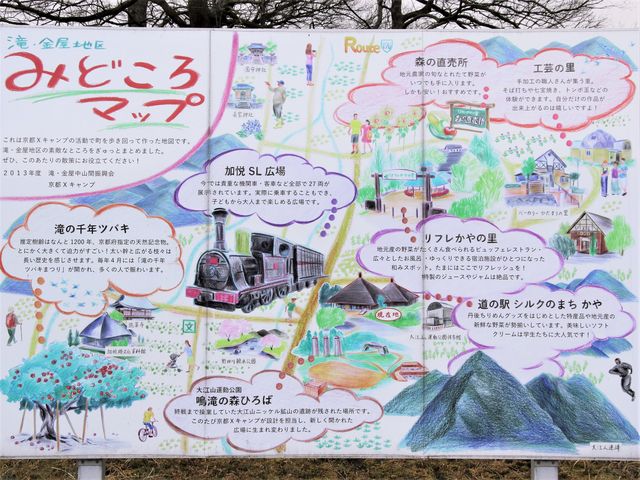 滝・金屋地区
みどころ
マップ
これは京都Xキャンプの活動で町を歩き回って作った地図です。
滝・金屋地区の素敵なところをぎゅっとまとめました。
ぜひ、このあたりの散策にお役立てください！
2013年度 滝・金屋中山間振興会
京都Xキャンプ
Route
森の直売所
地元農家の旬なとれたて野菜が
いつでも手に入ります。
しかも安い！おすすめです。
工芸の里
手加工の職人さんが集う里。
そば打ちや七宝焼き、トンボ玉などの
体験ができます。自分だけの作品が
出来上がるのは嬉しいですよ！
加悦SL広場
今では貴重な機関車・客車など全部で27両が
展示されています。実際に乗車することもでき、
子どもから大人まで楽しめる広場です。
滝の千年ツバキ
推定樹齢はなんと1200年、京都府指定の天然記念物。
とにかく大きくて迫力がすごい！太い幹と広がる枝々は
長い歴史を感じさせます。毎年4月には「滝の千年
ツバキまつり」が開かれ、多くの人で賑わいます。
リフレかやの里
地元産の野菜がたくさん食べられるビュッフェレストラン・
広々としたお風呂・ゆっくりできる宿泊施設がひとつになった
和みスポット。たまにはここでリフレッシュを！
特製のジュースやジャムも絶品です。
道の駅 シルクのまち かや
丹後ちりめんグッズをはじめとした特産品や地元産の
新鮮な野菜が勢揃いしています。美味しいソフト
クリームは学生たちに大人気です！
現在地
大江山運動公園
鳴滝の森ひろば
終戦まで操業していた大江山ニッケル鉱山の遺跡が残された場所です。
このたび京都Xキャンプが設計を担当し、新しく開かれた
広場に生まれ変わりました。
大江山連峰